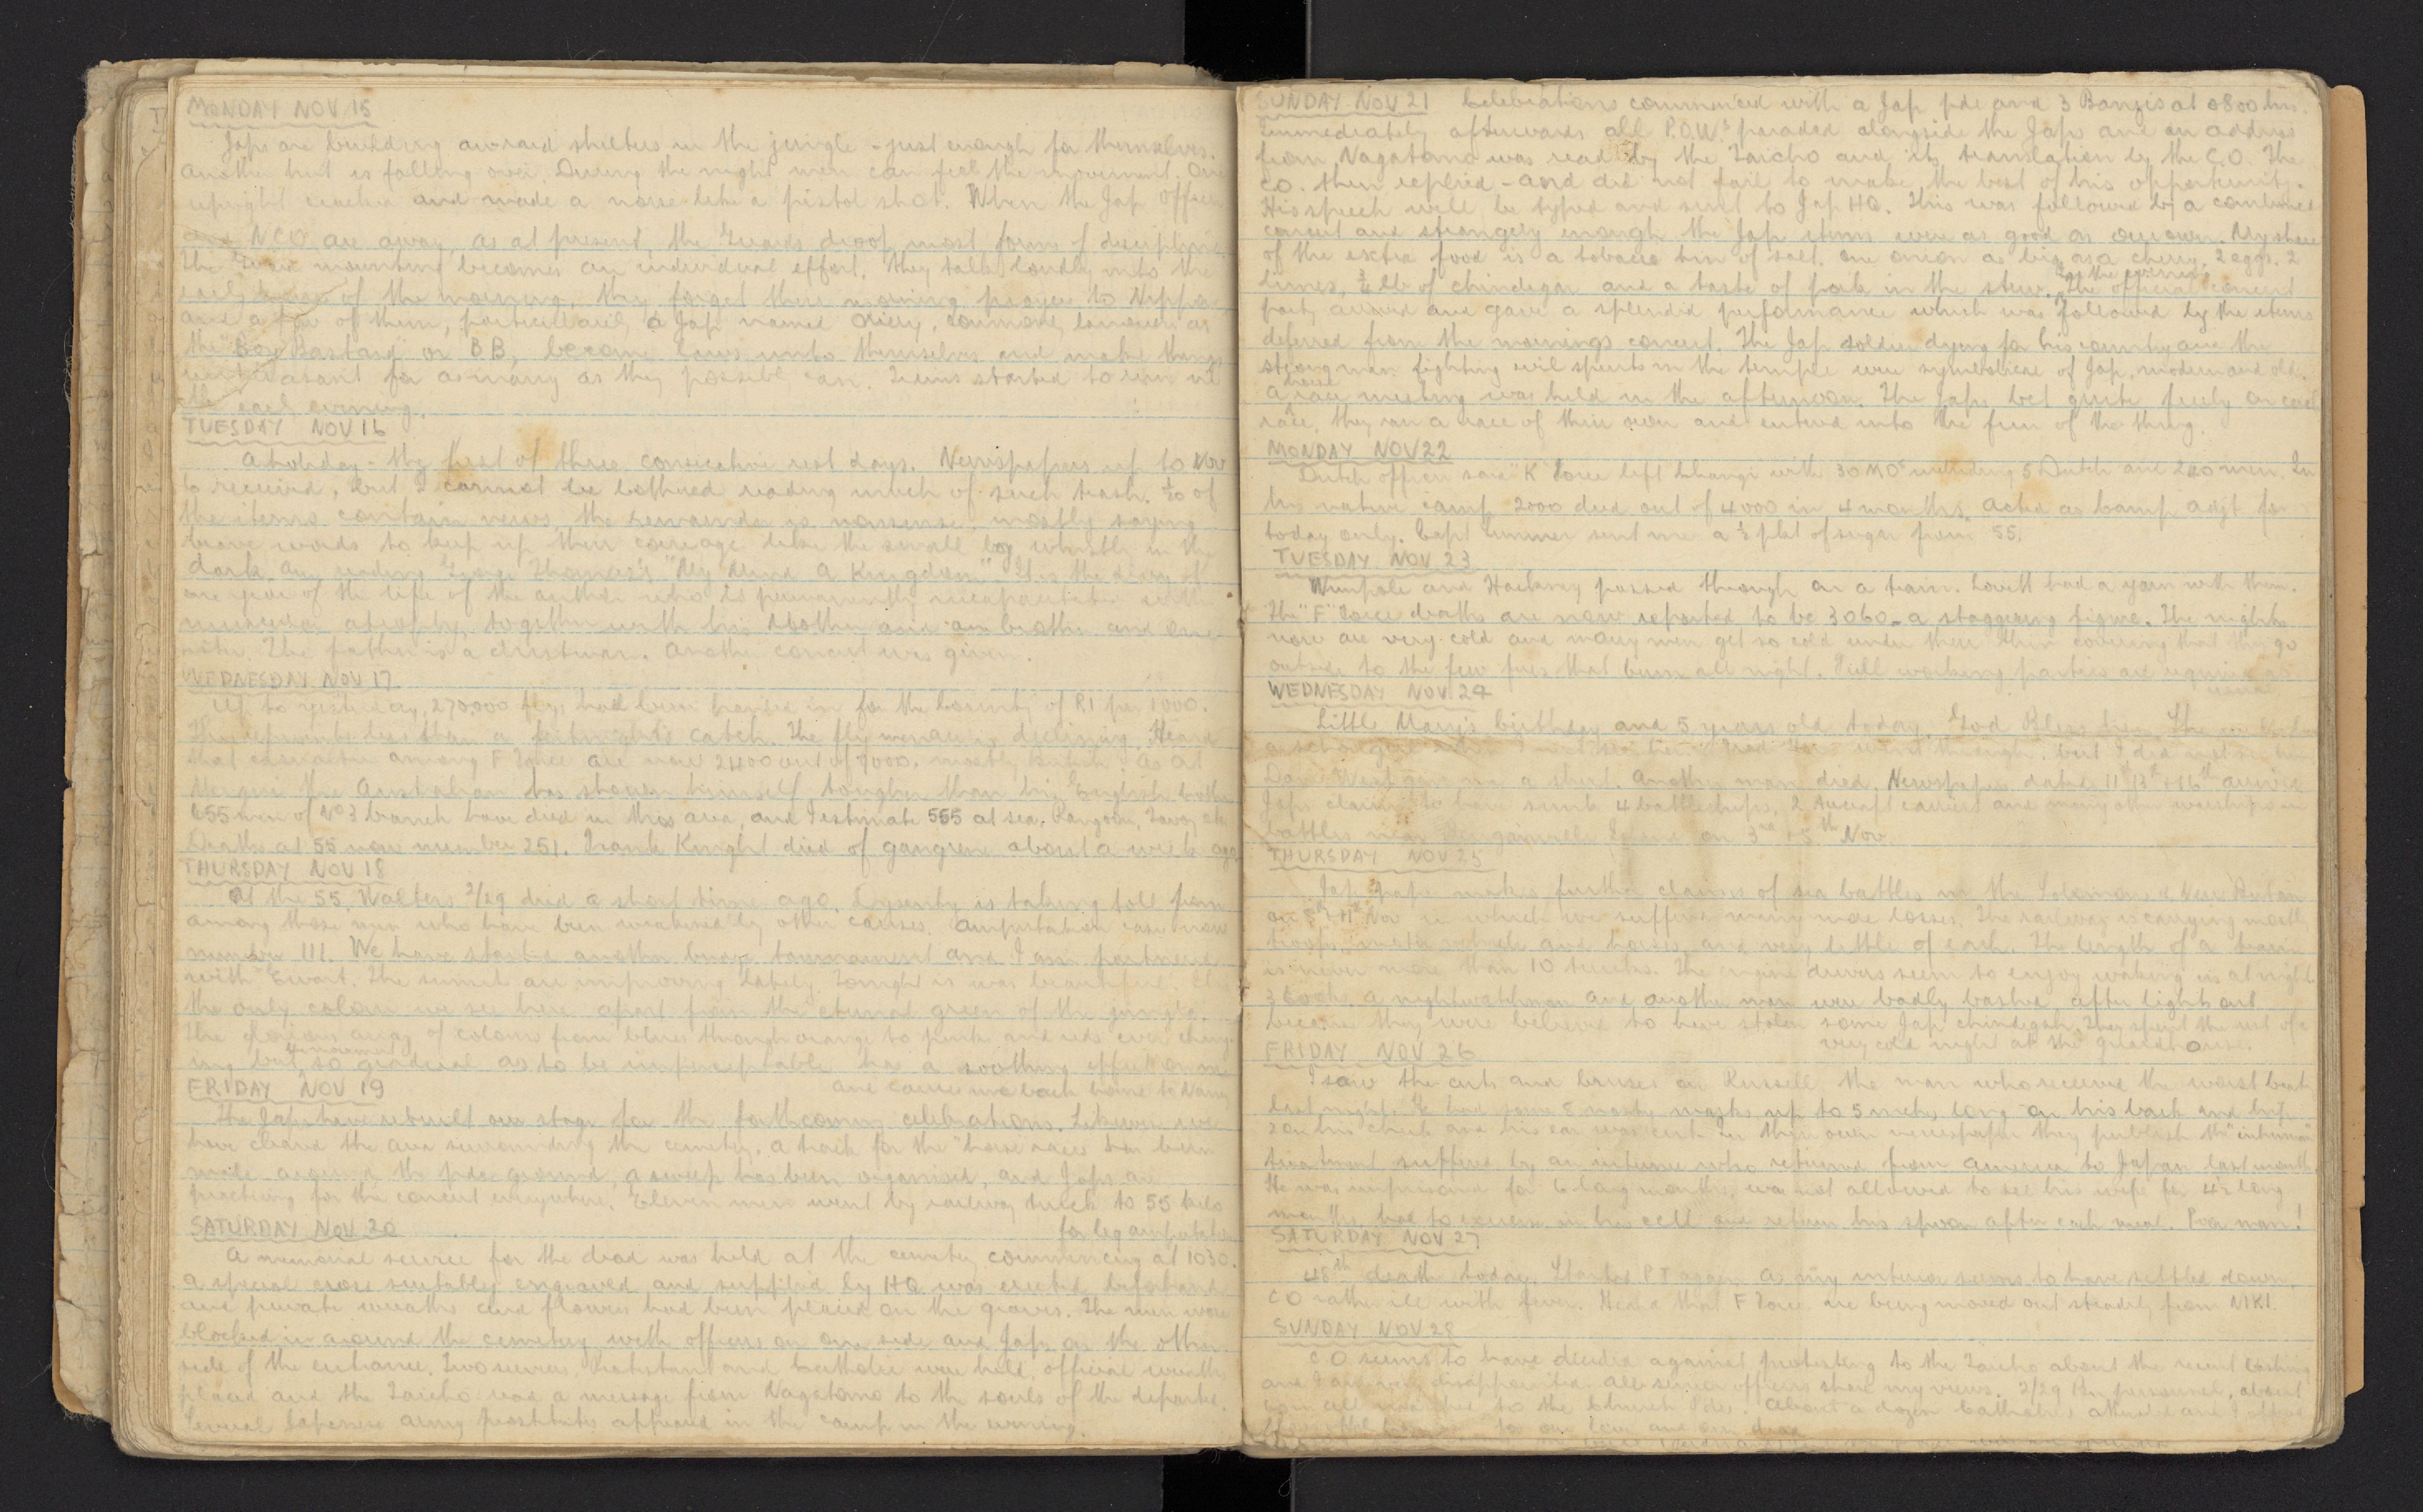 MONDAY NOV 15
Japs are building air raid shelters in the jungle - just enough for themselves.
Another hut is falling over. During the night men can feel the movement. One
upright cracked and made a noise like a pistol shot. When the Jap officer
and NCO are away, as at present, the guards drop most forms of discipline
The guard mounting becomes an individual effort, they talk loudly into the
early hours of the morning, they forget their morning prayer to Nippon
and a few of them, particularly a Jap named commonly known as
the "Boy Bastard" or BB, become laws unto themselves and make things
unpleasant for as many as they possibly can. started to
early evening.
TUESDAY NOV 16
A holiday - the first of three consecutive rest days. Newspapers up to Nov
10 received, but I cannot be bothered reading much of such trash. 1/20 of
the items contain news, the remainder is nonsense, mostly saying
brave words to keep up their courage like the small boy whistling in the
dark. Am reading George Thomas's "My Mind a Kingdom". It is the diary of
one year of the life of the author who is permanently incapacitated with
muscular atrophy, together with his mother and a brother and one
sister. The father is a dustman. Another concert was given.
WEDNESDAY NOV 17
Up to yesterday, 270,000 flys had been handed in for the bounty of R1 per 1000.
This represents less than a fortnight's catch. The fly menace is declining. Heard
that casualties among F Force are now 2400 out of 7000, mostly British. As at
Mergui the Australian has shown himself tougher than his English brother
655 men of No 3 branch have died in this area, and I estimate 555 at sea, Rangoon, Tavoy etc
Deaths at 55 now number 251. Frank Knight died of gangrene about a week ago
THURSDAY NOV 18
At the 55, Walters 2/29 died a short time ago. Dysentry is taking toll from
among those men who have been weakened by other causes. Amputation cases now
number 111. We have started another bridge tournament and I am partnered
with Ewart. The sunsets are improving lately. Tonight is was beautiful. It is
the only colour we see here apart from the eternal green of the jungle.
The glorious array of colours from blues through orange to pinks and reds ever chang-
ing but movement so gradual as to be imperceptable has a soothing effect on me
and carries me back home to
FRIDAY NOV 19
The Japs have rebuilt our stage for the forthcoming celebrations. Likewise we
have cleared the area surrounding the cemetery, a track for the "horse races" has been
made around the pde ground, a sweep has been organised, and Japs are
practising for the concert everywhere. Eleven men went by railway truck to 55 kilo
for leg amputation
SATURDAY NOV 20
A memorial service for the dead was held at the cemetery commencing at 1030.
A special cross suitably engraved and supplied by HQ was erected beforehand
and private wreaths and flowers had been placed on the graves. The men were
blocked in around the cemetery with officers on one side and Japs on the other
side of the entrance. Two services, Protestant and Catholic were held, official wreaths
placed and the Taicho read a message from Nagatomo to the souls of the departed.
Several Japanese army prostitutes appeared in the camp in the evening.
SUNDAY NOV 21 Celebrations commenced with a Jap pde and 3 Banzis at 0800 hrs.
Immediately afterwards all P.O.W.s paraded alongside the Japs and an address
from Nagatomo was read by the Taicho and its translation by the C.O. The
CO. then replied - and did not fail to make the best of his opportunity.
His speech will be typed and sent to Jap HQ. This was followed by a combined
concert and strangely enough the Jap items were as good as our own. My share
of the extra food is a tobacco tin of salt, one onion as big as a cherry, 2 eggs, 2
limes, lb of chindegar and a taste of pork in the stew. In the evening the official concert
party arrived and gave a splendid performance which was followed by the items
deferred from the mornings concert. The Jap soldier dying for his country and the
strong man fighting evil spirits in the temple were symbolical of Jap, modern and old.
A horse race meeting was held in the afternoon. The Japs bet quite freely on each
race, they ran a race of their own and entered into the fun of the thing.
MONDAY NOV 22
Dutch officer said "K" Force left Changi with 30 MOs including 5 Dutch and 200 men. In
his native camp 2000 died out of 4000 in 4 months. Acted as Camp adjt for
today only. Capt sent me a 1/2 pkt of sugar from 55.
TUESDAY NOV 23
Wimpole and Hackney passed through on a train. Lovett had a yarn with them.
The "F" Force deaths are now reported to be 3060 - a staggering figure. The nights
now are very cold and many men get so cold under their thin covering that they go
outside to the few fires that burn all night. Full working parties are required as
usual
WEDNESDAY NOV 24
Little Mary's birthday and 5 years old today. God Bless her.
went through, but I did not see him.
Dave West gave me a shirt. Another man died. Newspapers dated 11th 13th & 16th arrived
Japs claim to have sunk 4 battleships, 2 aircraft carriers and many other warships in
battles near Bougainville Island on 3rd & 5th Nov
THURSDAY NOV 25
Jap paper makes further claims of sea battles in the Solomons & New Britain
on 8th & 11th Nov in which we suffered many more losses. The railway is carrying mostly
troops, motor vehicles and horses, and very little of each. The length of a train
is never more than 10 trucks. The engine drivers seem to enjoy waking us at night
3 cooks, a nightwatchman and another man were badly bashed after lights out
because they were believed to have stolen some Jap chindegah. They spent the rest of a
very cold night at the guardhouse.
FRIDAY NOV 26
I saw the cuts and bruises on Russell, the man who received the worst bash
last night. He had some 8 nasty marks up to 5 inches long on his back and hip
2 on his cheek and his ear was cut. In their own newspaper they publish the "inhuman"
treatment suffered by an internee who returned from America to Japan last month
He was imprisoned for 6 long months, was not allowed to see his wife for 4½ long
months, had to exercise in his cell and return his spoon after each meal. Poor man!
SATURDAY NOV 27
48th death today. Started PT again as my interior seems to have settled down.
CO rather ill with fever. Heard that F Force are being moved out steadily from NIKI.
SUNDAY NOV 28
CO seems to have decided against protesting to the Taicho about the recent bashing
and I am very disappointed. All senior officers share my views. 2/29 Bn personnel, absent
to the Church Pde. About a dozen Catholics attended and I offered
to our love and our dead